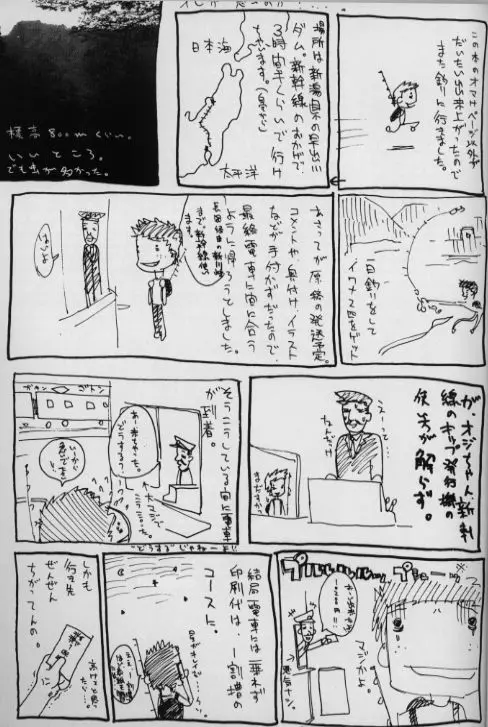 この本のオマケページ以外が
だいたい出来上がったので
また釣りに行きました。
場所は新潟県の早出川
ダム。新幹線のおかげで、
3時間半くらいで行け
ちゃいます。
日本海
太平洋
標高800mくらい。
いいところ。
でも虫が多かった。
一日釣りをして
イワナ2匹をゲット
あさってが原稿の発送予定。
コメントや奥付け、イラスト
などが手付かずだったので、
最終電車に間に合う
ようにに帰ろうとしました。
ます。
はいよ
が、オジちゃん、新幹
線のキップ発行機の
使い方が解らず。
えーっと…
なんだっけ
まだですか
そうこうしている間に電車
が到着。
ガタン
ゴトン
あー来ちゃった。
どうするう?
いいから
急いで下さい
"どうする"じゃねーよ!!
プルルルルル…
プシュー…
マジかよ。
結局電車には乗れず
印刷代は、1割増の
コースに。
星がキレイだ…
しかも
行き先
ぜんぜん
ちがってんの。